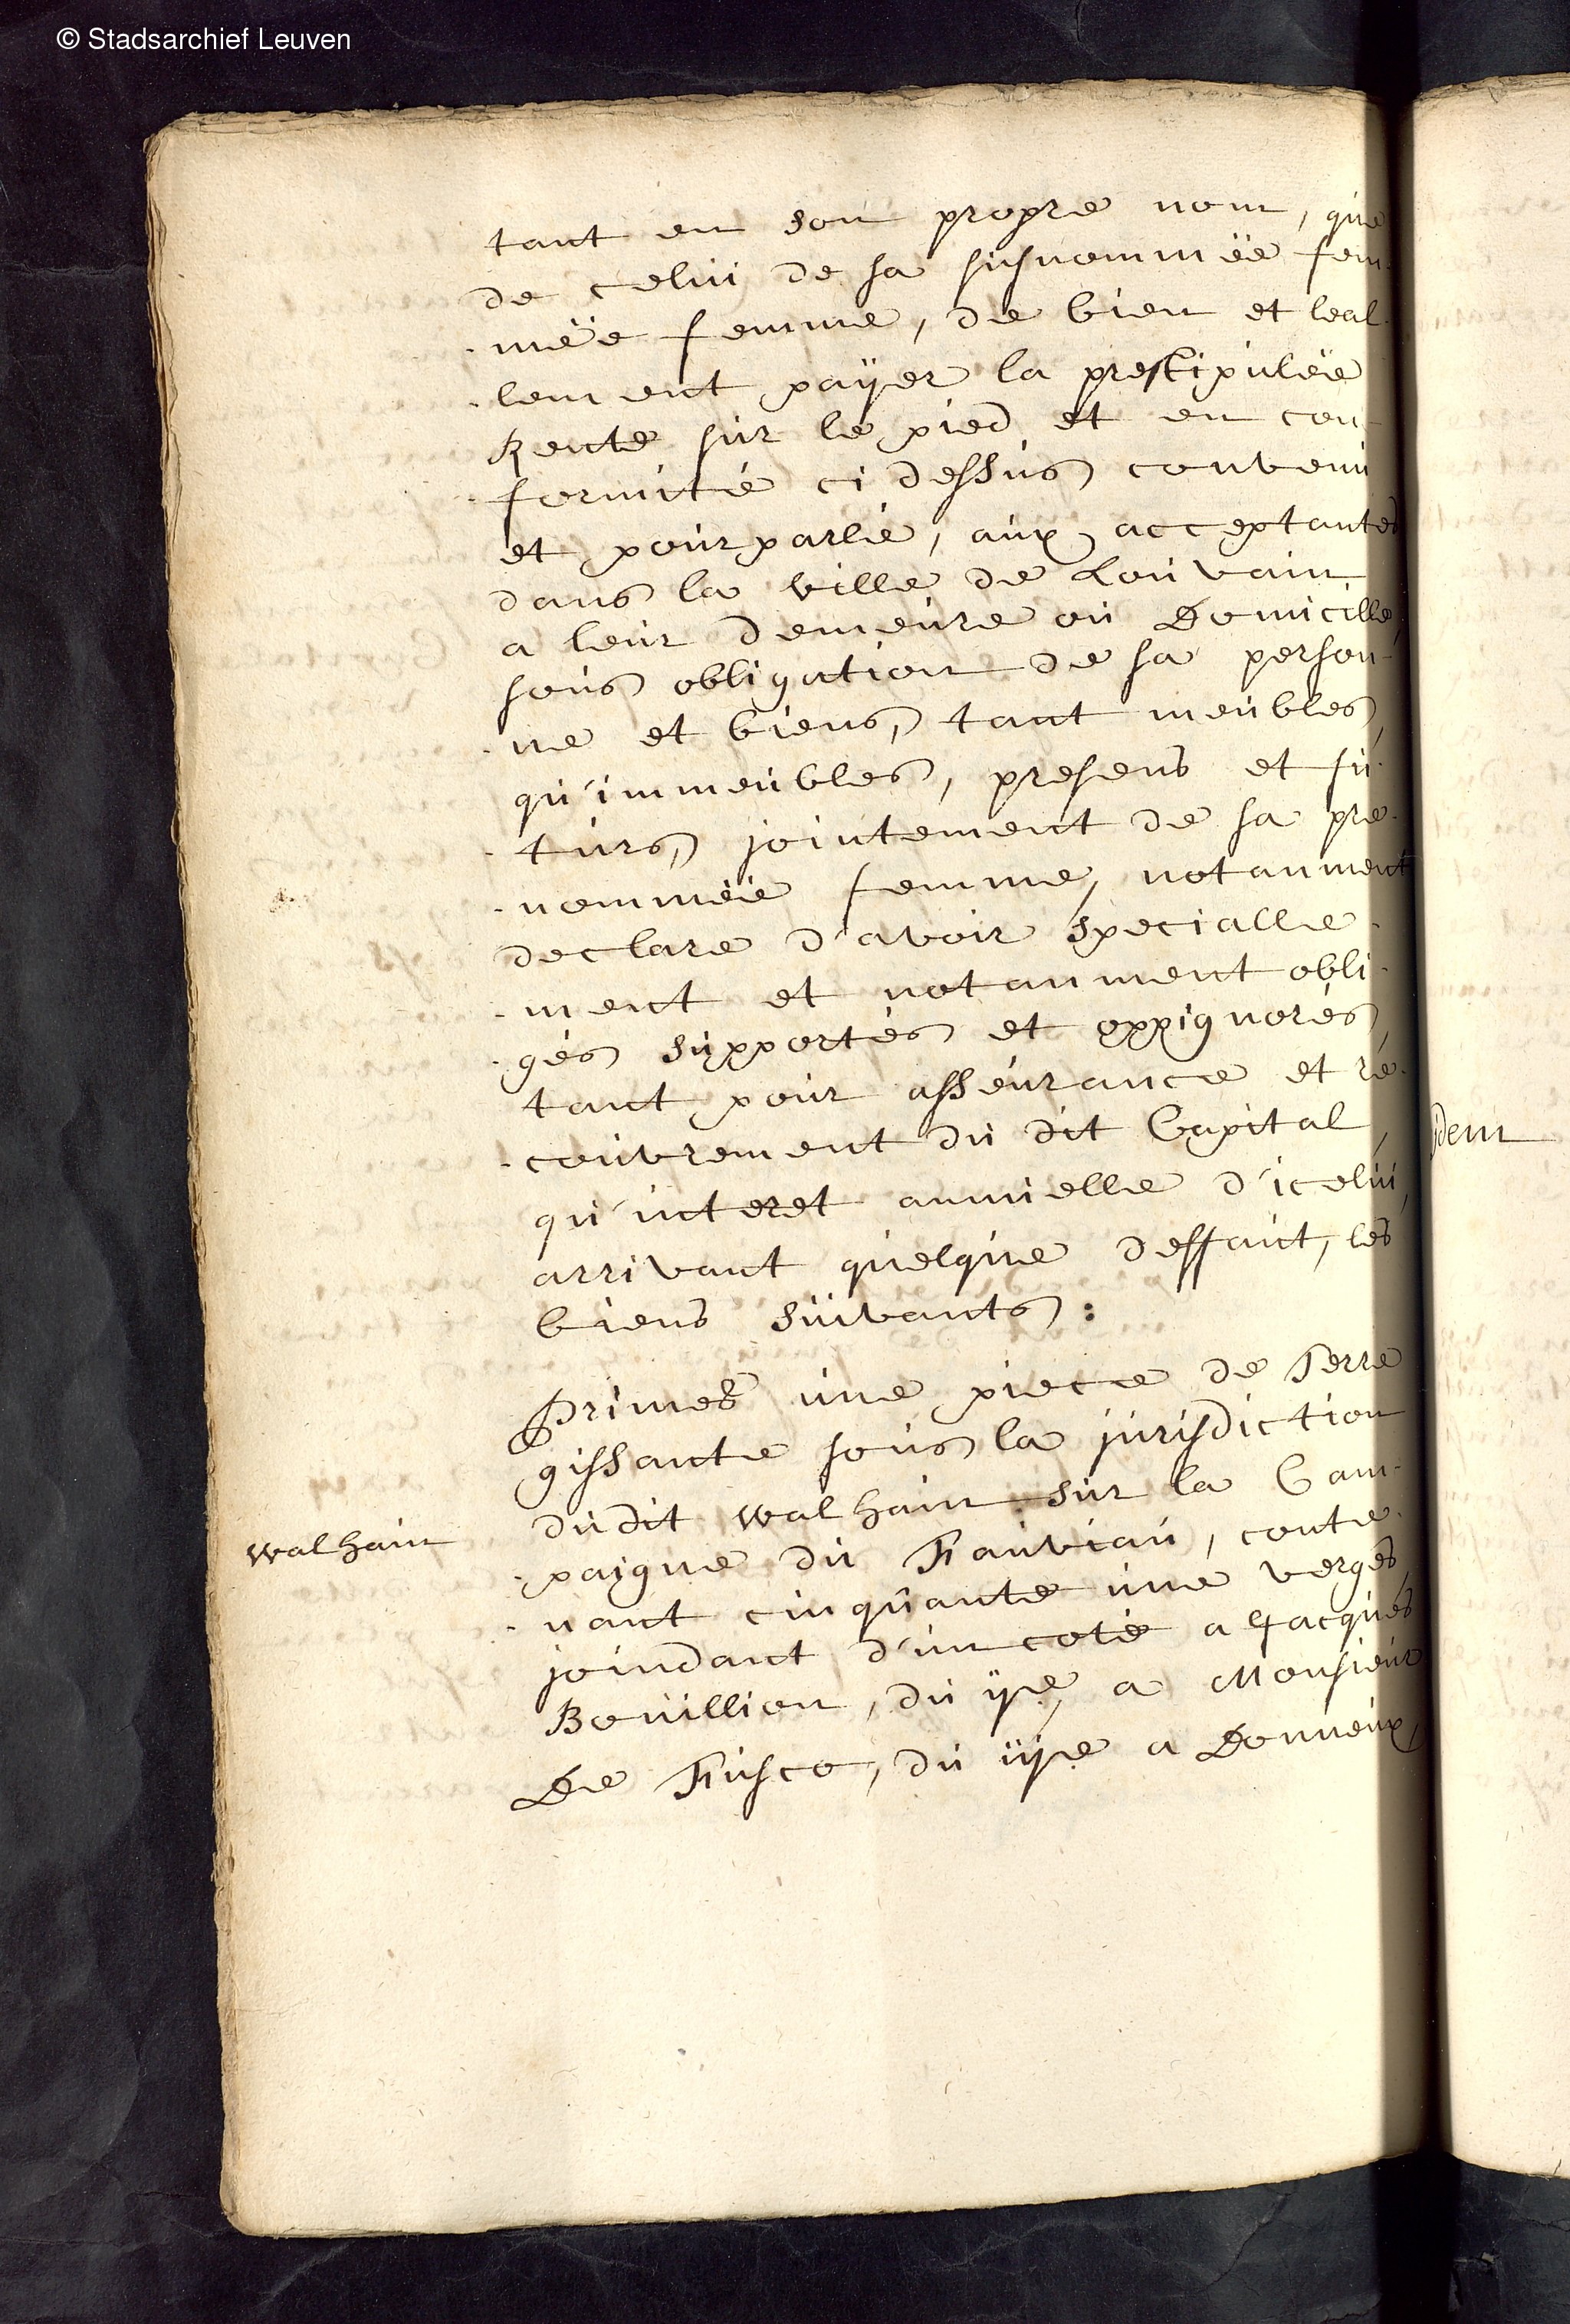 © Stadsarchief Leuven
tant en son propre nom, que
de celui de sa susnommëe fem-
-mëe femme, de bien et leal-
-lement païjer la prestipulëe
Rente sur le pied et en con-
-formité ci dessus convenu
et pourparlé, aux acceptantes
dans la ville de Louvain
a leur demeure ou Domicille,
sous obligation de sa person-
-ne et biens, tant meubles,
qu'immeubles, presens et fu-
-turs, jointement de sa pre-
-nommëe femme, notamment
declare d'avoir specialle-
-ment et notamment obli-
-gés supportés et oppignorés,
tant pour asseurance et ré-
-couvrement du dit Capital,
qu'interet annuielle d'icelui,
arrivant quelque deffaut, les
biens suivants:
Primes une piece de Terre
gissante sous la jurisdiction
dudit walhain sur la Cam-
walhain
-paigne du Fauviau, conte-
-nant cinquante une verges,
joindant d'un coté a Jacques
Bouillion, du ije, a Monsieur
De Fusco, du iije a Donneux,
idem